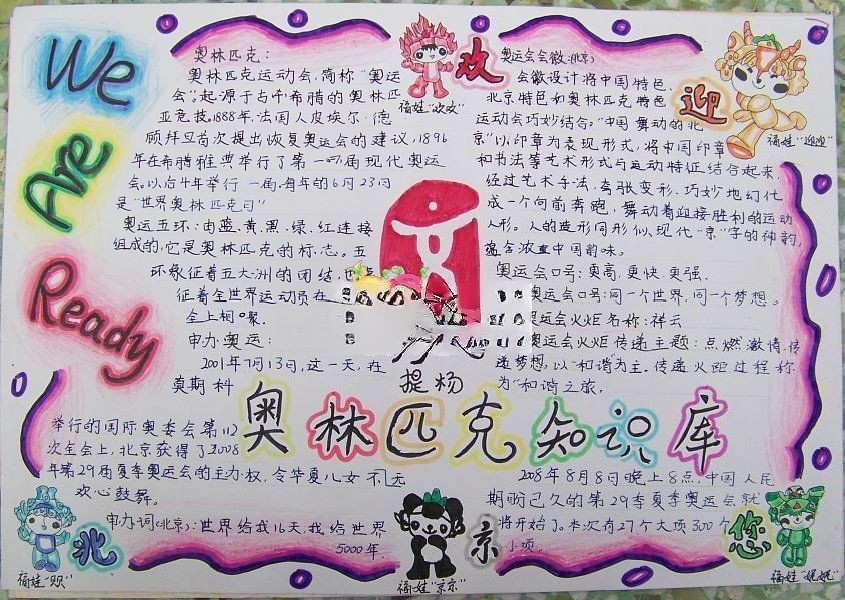 We
Are
Ready
奥林匹克:
奥林匹克运动会,简称"奥运
会",起源于古希腊的奥林匹
亚竞技,1888年,法国人皮埃尔·德
顾拜旦首次提出恢复奥运会的建议,1896
年在希腊雅典举行了第一届现代奥运
会.以后4年举行一届.每年的6月23日
是"世界奥林匹克日"
奥运五环:由蓝、黄、黑、绿、红连接
组成的,它是奥林匹克的标志。五
环象征着五大洲的团结,也
征着全世界运动员在
会上相聚.
申办奥运:
2001年7月13日,这一天,在
莫斯科
举行的国际奥委会第112
次全会上,北京获得了2008
年第29届夏季奥运会的主办权,令华夏儿女不
欢心鼓舞。
申办词(北京):世界给我16天,我给世界
5000年.
福娃"欢欢"
欢
奥运会会徽:(北京)
会徽设计将中国特色.
北京特色如奥林匹克特色
运动会巧妙结合。"中国舞动的北
京"以印章为表现形式,将中国印章
和书法等艺术形式与运动特征结合起来,
经过艺术手法.夸张变形.巧妙地幻化
成一个向前奔跑,舞动着迎接胜利的运动
人形。人的造形同形似现代"京"字的神韵,
蕴含浓重中国韵味。
奥运会口号:更高.更快.更强.
奥运会口号:同一个世界,同一个梦想。
奥运会火炬名称:祥云
奥运会火炬传递主题:点燃激情.传
递梦想,以"和谐"为主.传递火距过程称
为"和谐之旅.
迎
福娃"迎迎"
提杨
奥林匹克知识库
2008年8月8日晚上8点,中国人民
期盼已久的第29季夏季奥运会就
将开始了。本次有27个大项300个
小项.
北
福娃"贝贝"
京
福娃"京京"
您
福娃"妮妮"